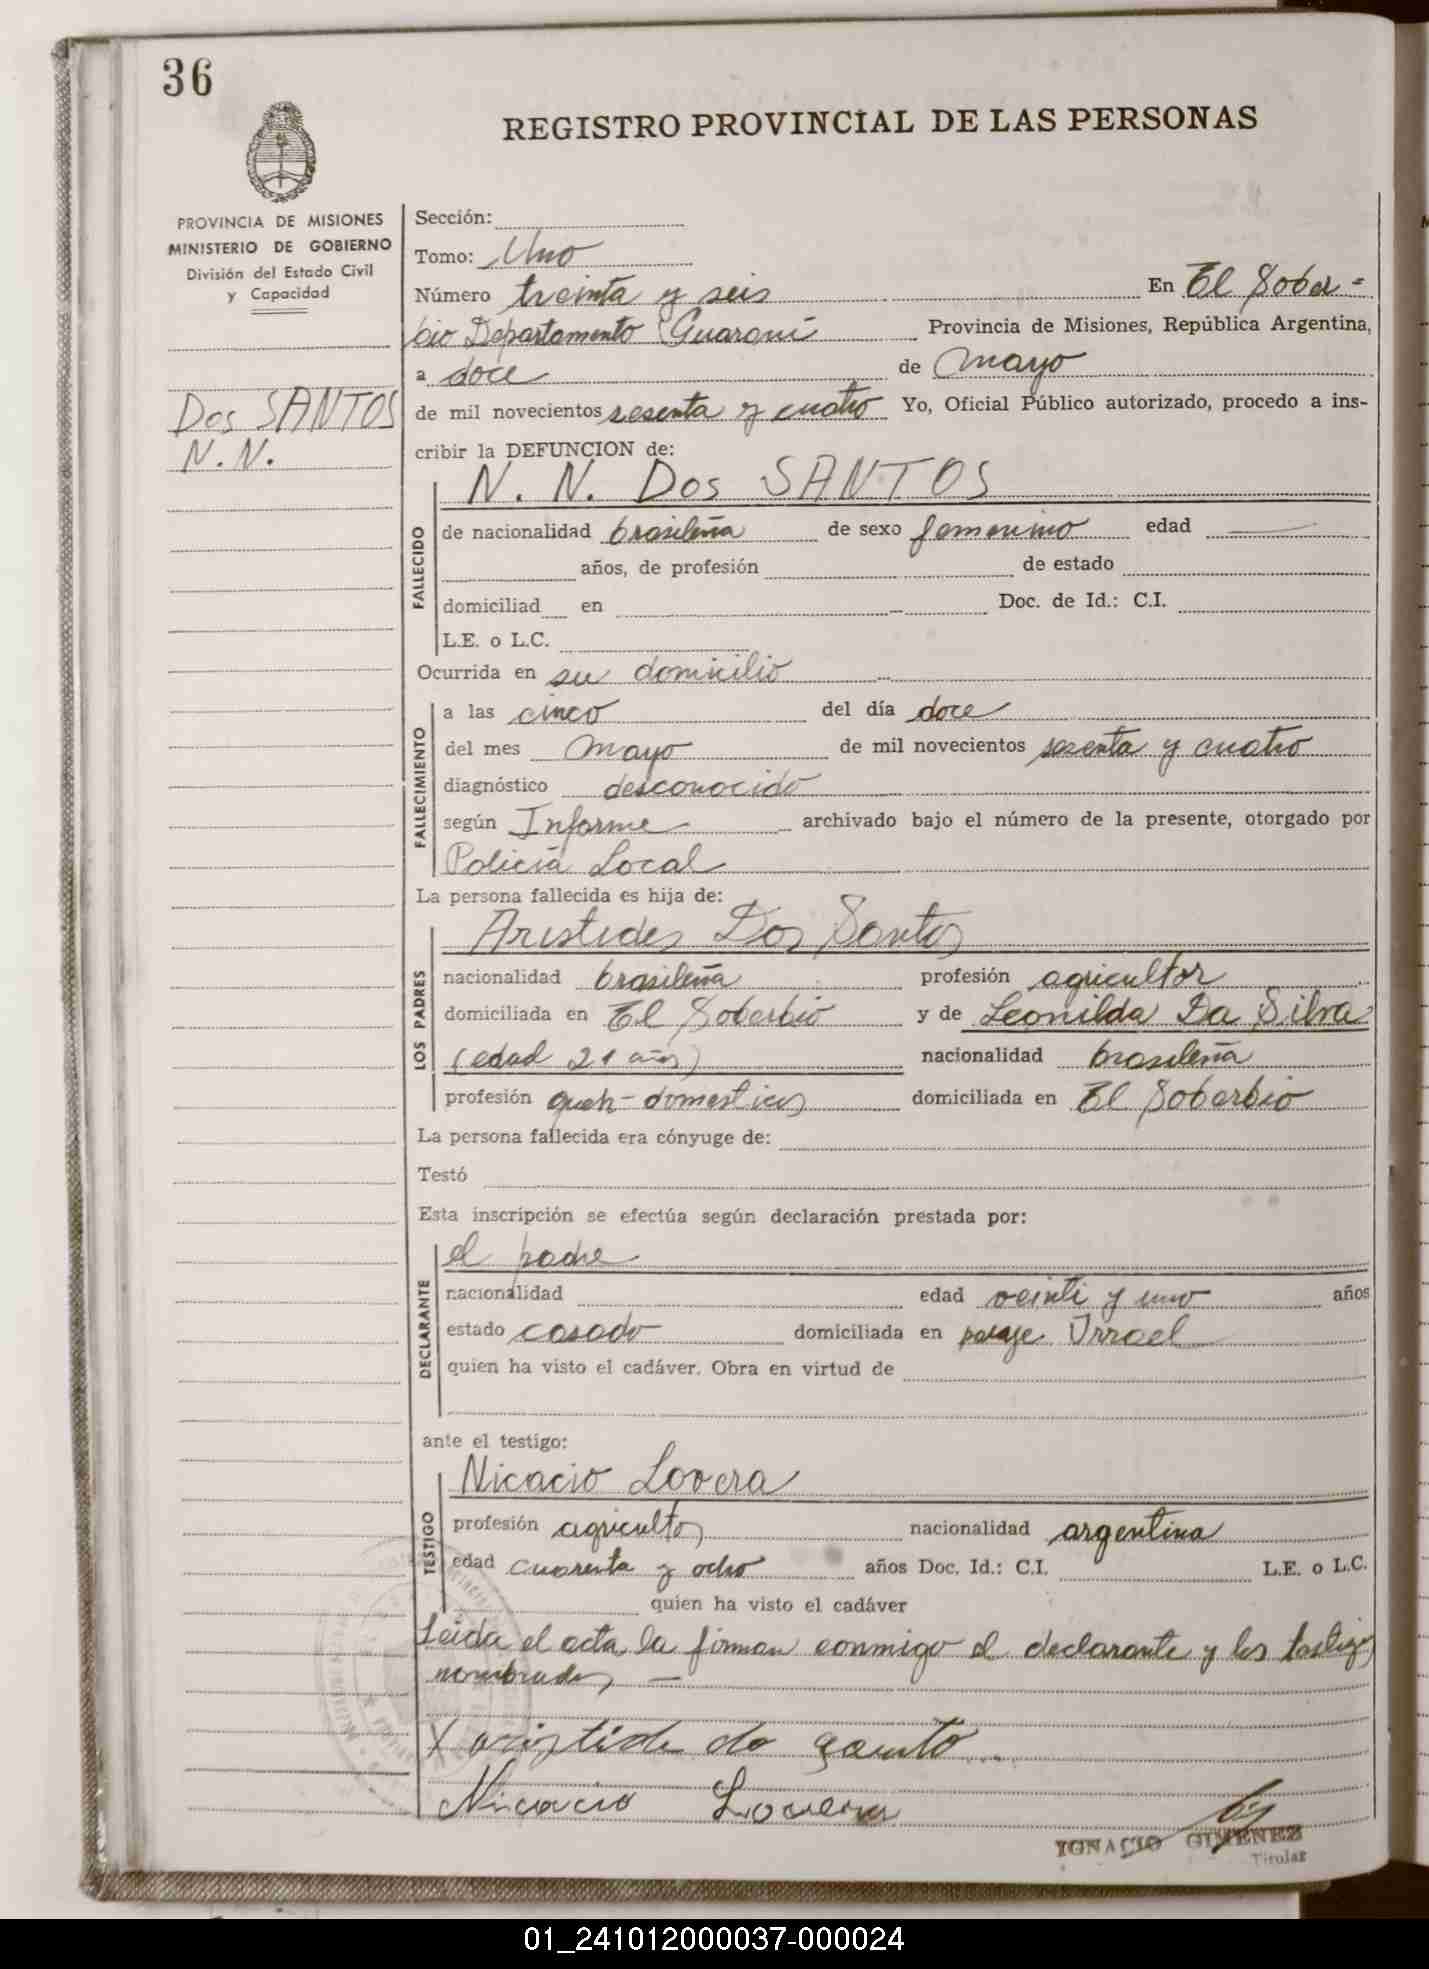 36
REGISTRO PROVINCIAL DE LAS PERSONAS
PROVINCIA DE MISIONES
MINISTERIO DE GOBIERNO
División del Estado Civil
y Capacidad
Dos SANTOS
N. N.
Sección:
Tomo: Uno
Número treinta y seis En El Sober-
bio Departamento Guaraní Provincia de Misiones, República Argentina,
a doce de mayo
de mil novecientos sesenta y cuatro Yo, Oficial Público autorizado, procedo a ins-
cribir la DEFUNCION de:
N. N. Dos SANTOS
FALLECIDO
de nacionalidad brasileña de sexo femenino edad
años, de profesión de estado
domiciliad en Doc. de Id.: C.I.
L.E. o L.C.
Ocurrida en su domicilio
FALLECIMIENTO
a las cinco del día doce
del mes mayo de mil novecientos sesenta y cuatro
diagnóstico desconocido
según Informe archivado bajo el número de la presente, otorgado por
Policía Local
La persona fallecida es hija de:
LOS PADRES
Aristides Dos Santos
nacionalidad brasileña profesión agricultor
domiciliada en El Soberbio y de Leonilda Da Silva
(edad 21 años) nacionalidad brasileña
profesión queh-domesticos domiciliada en El Soberbio
La persona fallecida era cónyuge de:
Testó
Esta inscripción se efectúa según declaración prestada por:
DECLARANTE
el padre
nacionalidad edad veinti y uno años
estado casado domiciliada en paraje Irrael
quien ha visto el cadáver. Obra en virtud de
ante el testigo:
TESTIGO
Nicacio Lovera
profesión agricultor nacionalidad argentina
edad cuarenta y ocho años Doc. Id.: C.I. L.E. o L.C.
quien ha visto el cadáver
Leida el acta la firman conmigo el declarante y los testigos
nombrados —
X aristide do santo
Nicacio Lovera
IGNACIO GIMENEZ
Titular
01_241012000037-000024